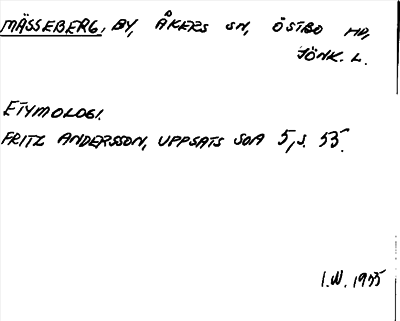 MÄSSEBERG, BY, ÅKERS SN, ÖSTBO HD,
JÖNK. L.
ETYMOLOGI.
FRITZ ANDERSSON, UPPSATS SOA 5, S. 55.
I.W. 1955